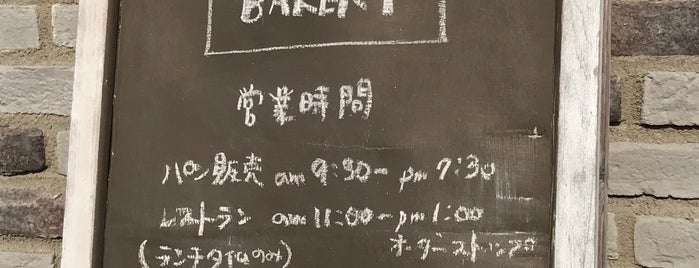 BAKERY
営業時間
パン販売 am 9:30- pm 7:30
レストラン am 11:00-pm 1:00
(ランチタイムのみ) オーダーストップ